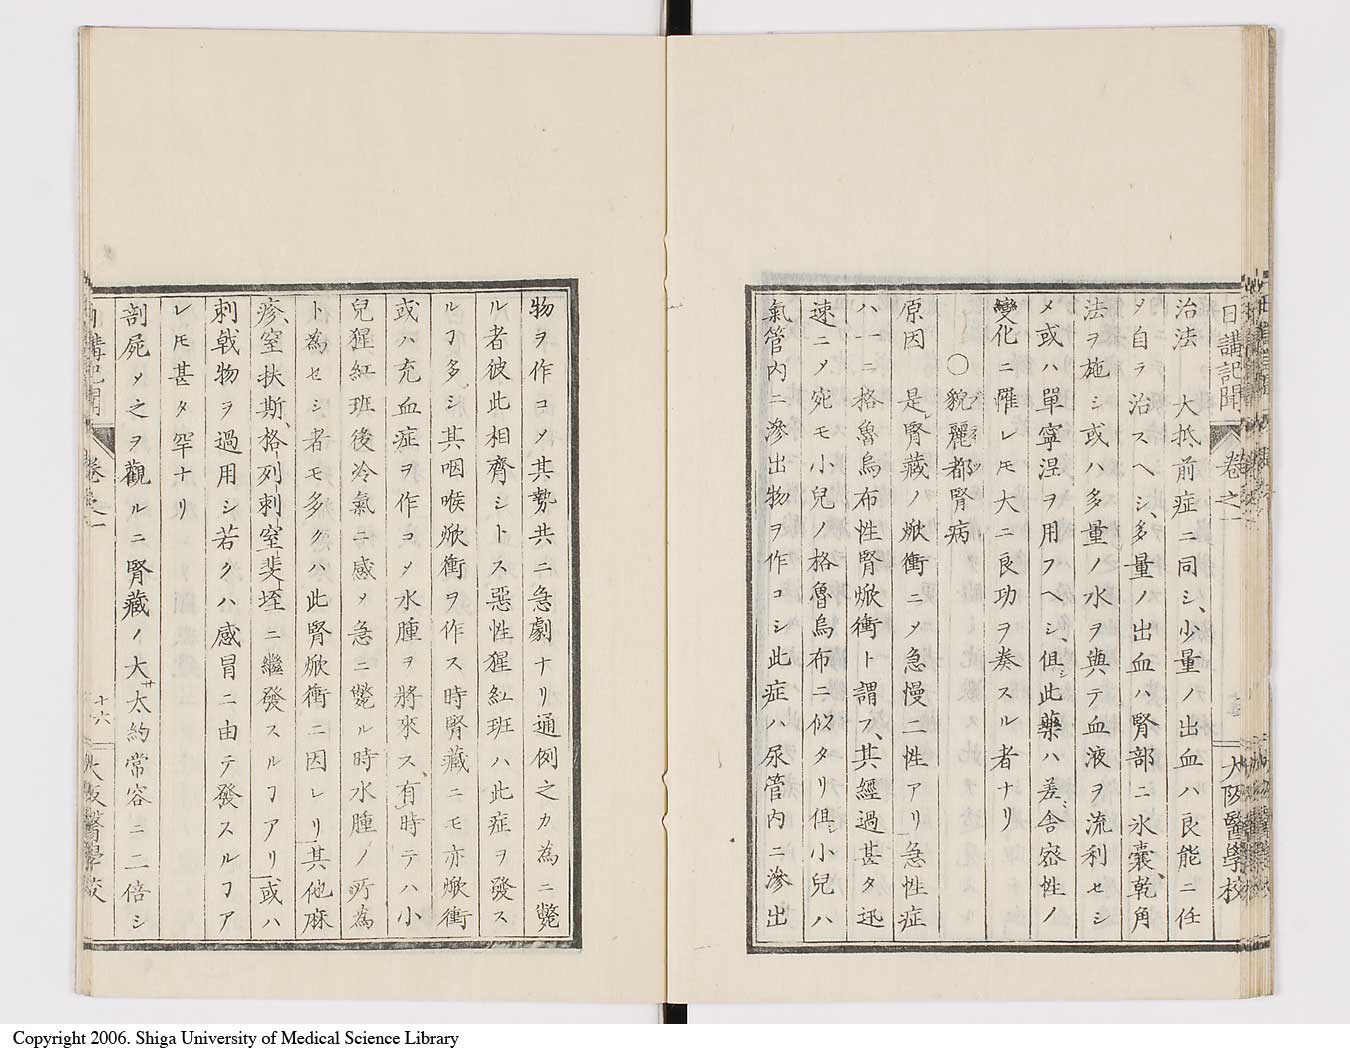 日講記聞 卷之一 大阪醫學校
治法　大抵前症ニ同シ、少量ノ出血ハ良能ニ任
メ自ラ治スヘシ、多量ノ出血ハ腎部ニ氷囊、乾角
法ヲ施シ或ハ多量ノ水ヲ與テ血液ヲ流利セシ
メ或ハ單寧涅ヲ用フヘシ、但シ此藥ハ差ミ舍密性ノ
變化ニ罹レ𪜈大ニ良功ヲ奏スル者ナリ
〇貌麗都腎病
原因　是レ腎藏ノ焮衝ニメ急慢二性アリ急性症
ハ一ニ格魯烏布性腎焮衝ト謂フ、其經過甚タ迅
速ニメ宛モ小兒ノ格魯烏布ニ似タリ但シ小兒ハ
氣管內ニ滲出物ヲ作コシ此症ハ尿管內ニ滲出
物ヲ作コメ其勢共ニ急劇ナリ通例之カ為ニ斃
ル者彼此相齊シトス惡性猩紅班ハ此症ヲ發ス
ルヿ多シ其咽喉焮衝ヲ作ス時腎藏ニモ亦焮衝
或ハ充血症ヲ作コメ水腫ヲ將來ス、有時テハ小
兒猩紅班後冷氣ニ感メ急ニ斃ル時水腫ノ所為
ト為セシ者モ多クハ此腎焮衝ニ因レリ其他麻
疹、窒扶斯、格列刺窒斐垤ニ繼發スルヿアリ或ハ
刺戟物ヲ過用シ若クハ感冒ニ由テ發スルヿア
レ𪜈甚タ罕ナリ
剖屍メ之ヲ觀ルニ腎藏ノ大サ太約常容ニ二倍シ
日講記聞 卷之一 十六 大阪醫學校
Copyright 2006. Shiga University of Medical Science Library